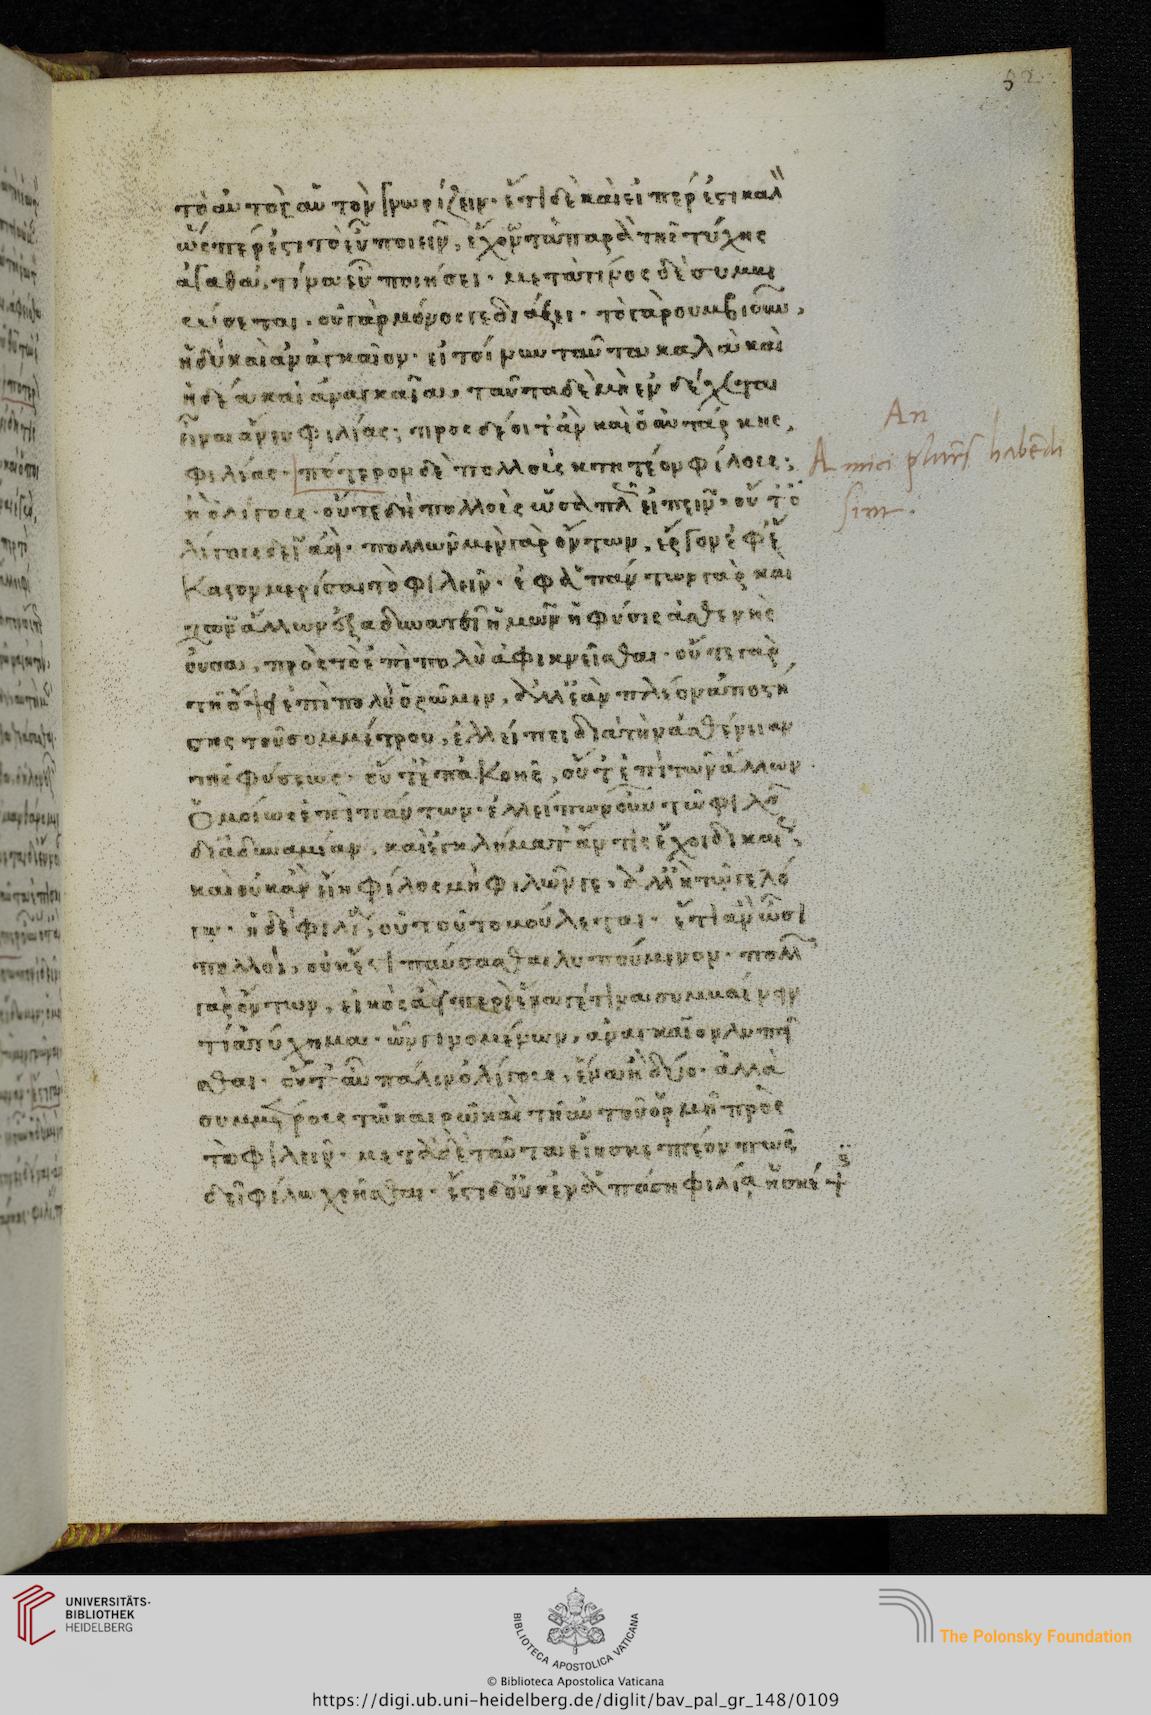 52
τὸ αὐτὸς αὑτὸν γνωρίζειν· ἔτι δὲ καὶ εἴπερ ἐστὶ καλ
ὥσπερ ἐστὶ τὸ εὖ ποιεῖν, ἔχοντα παρὰ τῆς τύχης
ἀγαθά, τίνα εὖ ποιήσει· μετὰ τίνος δὲ συμ
οὐ γὰρ μόνος γε διάξει· τὸ γὰρ συμβιοῦν,
ἡδὺ καὶ ἀναγκαῖον· εἰ τοίνυν ταῦτα καλὰ καὶ
ἡδέα καὶ ἀναγκαῖα, ταῦτα δὲ μὴ ἐνδέχεται
εἶναι ἄνευ φιλίας; προσδέοιτ' ἂν καὶ ὁ αὐτάρκης,
φιλίας· πότερον δὲ πολλοὺς κτητέον φίλους;
An
Amici plures habendi
sint.
ἢ ὀλίγους· οὔτε δὴ πολλοὺς εἰπεῖν· οὔτ' ὀ
λίγους δεῖ ἀεί· πολλῶν μὲν γὰρ ὄντων, ἔργον ἐφ' ἕ
καστον μερίσαι τὸ φιλεῖν· ἐπὶ πάντων γὰρ καὶ
τῶν ἄλλων ἐξαδυνατεῖ ἡμῶν ἡ φύσις ἀσθενὴς
οὖσα, πρὸς τὸ ἐπὶ πολὺ ἀφικνεῖσθαι· οὔτε γὰρ
τῇ ὄψει ἐπὶ πολὺ ὁρῶμεν, ἀλλ' ἐὰν πλέον ἀποστή
σῃς τοῦ συμμέτρου, ἐλλείπει διὰ τὴν ἀσθένειαν
τῆς φύσεως· οὔτ' ἐπ' ἀκοῆς, οὔτ' ἐπὶ τῶν ἄλλων
ὁμοίως ἐπὶ πάντων· ἐλλείπων οὖν τῷ φιλ
δι' ἀδυναμίαν, καὶ ἐγκλήματ' ἄν τις ἔχοι δίκαι
καὶ οὐκ ἂν εἴη φίλος μὴ φιλῶν γε, ἀλλ' ἢ τῷ λό
γῳ· ἡ δὲ φιλία, οὐ τοῦτο βούλεται· ἔτι ἂν ὦσι
πολλοί, οὐκ ἔστι παύσασθαι λυπούμενον· πολλῶν
γὰρ ὄντων, εἰκὸς ἀεὶ περὶ ἕνα γέ τινα συμβαίνειν
τι ἀτύχημα· ὧν γινομένων, ἀναγκαῖον λυπεῖ
σθαι· οὔτ' αὖ πάλιν ὀλίγους, ἕνα ἢ δύο· ἀλλὰ
συμμέτρους τῷ καιρῷ καὶ τῇ αὑτοῦ ὁρμῇ πρὸς
τὸ φιλεῖν· μετὰ δὲ ταῦτα σκεπτέον πῶς
δεῖ φίλῳ χρῆσθαι· ἔστι δ' οὐκ ἐν ἁπάσῃ φιλίᾳ ἡ σκέ
UNIVERSITÄTS-
BIBLIOTHEK
HEIDELBERG
BIBLIOTECA APOSTOLICA VATICANA
The Polonsky Foundation
© Biblioteca Apostolica Vaticana
https://digi.ub.uni-heidelberg.de/diglit/bav_pal_gr_148/0109